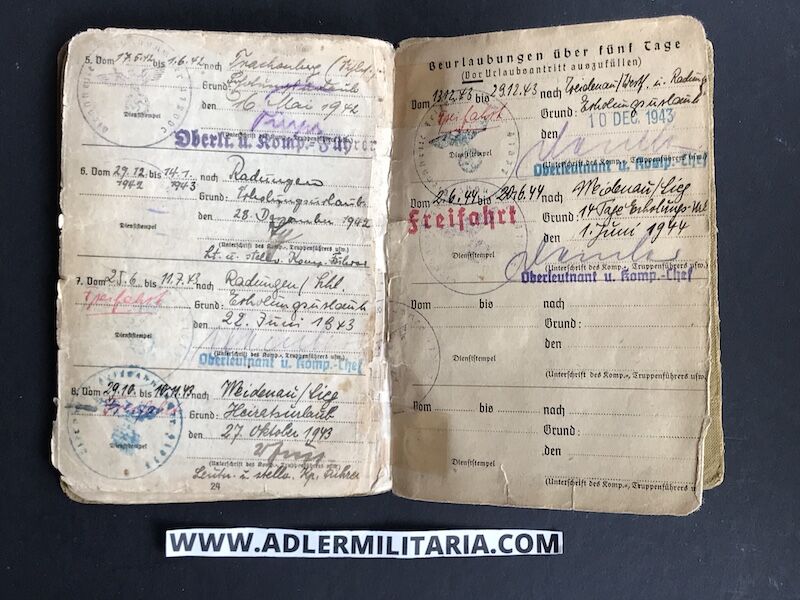 5. Vom 17.5.42 bis 1.6.42 nach Trachenberg
Grund:
den 16 Mai 1942
Dienststempel
Oberlt. u. Komp.-Führer
6. Vom 29.12. 1942 bis 14.1. 1943 nach Radungen
Grund: Erholungsurlaub
den 28. Dezember 1942
Dienststempel
(Unterschrift des Komp., Truppenführers usw.)
Lt. u. stellv. Komp. Führer
7. Vom 25.6. bis 11.7.43 nach Radungen/
Freifahrt Grund: Erholungsurlaub
den 22. Juni 1943
Dienststempel
(Unterschrift des Komp., Truppenführers usw.)
Oberleutnant u. Komp.-Chef
8. Vom 29.10. bis nach Weidenau/Sieg
Grund: Heiratsurlaub
den 27. Oktober 1943
Dienststempel
(Unterschrift des Komp., Truppenführers usw.)
Leutn. u. stellv. Kp. Führer
24
Beurlaubungen über fünf Tage
(Vor Urlaubsantritt auszufüllen)
Vom 13.12.43 bis 29.12.43 nach u.
Freifahrt Grund: Erholungsurlaub
den 10 DEC. 1943
Dienststempel
(Unterschrift des Komp.-, Truppenführers usw.
Oberleutnant u. Komp.-Chef
Vom 2.6.44 bis 20.6.44 nach Weidenau/Sieg
Freifahrt Grund: 14 Tage Erholungs-
den 1. Juni 1944
Dienststempel
(Unterschrift des Komp.-, Truppenführers usw.)
Oberleutnant u. Komp.-Chef
Vom bis nach
Grund:
den
Dienststempel
(Unterschrift des Komp.-, Truppenführers usw.
Vom bis nach
Grund:
den
Dienststempel
(Unterschrift des Komp.-, Truppenführers u
WWW.ADLERMILITARIA.COM